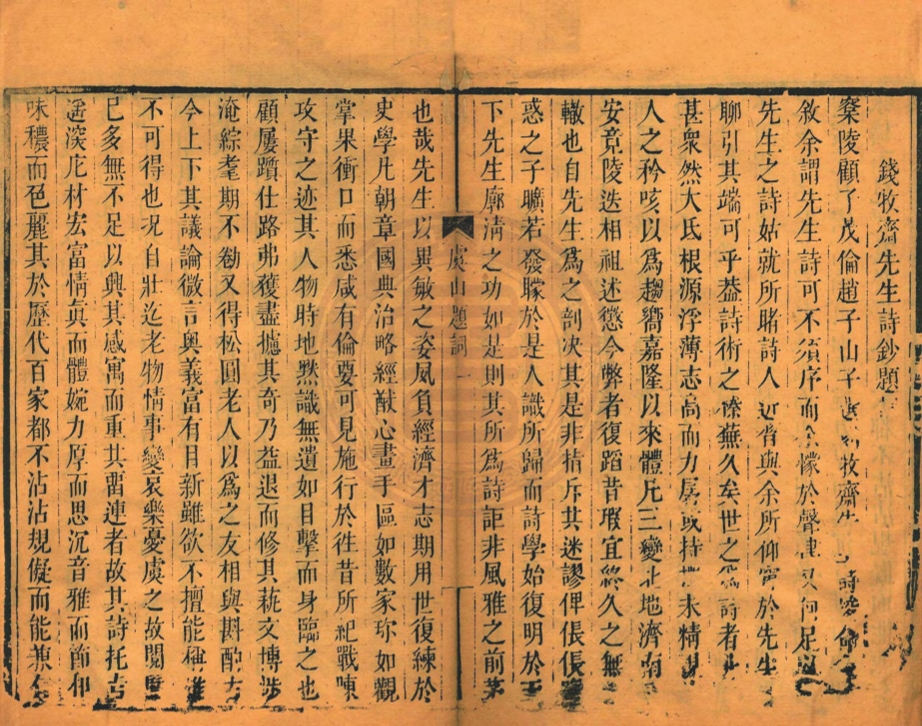 錢牧齋先生詩鈔題
棃陵顧了茂倫趙子山子牧齋先詩命
敘余謂先生詩可不須序而余懞於聲律又何足以
先生之詩姑就所睹詩人近者與余所仰窺於先生
聊引其端可乎葢詩術之蓁蕪久矣世之爲詩者
甚衆然大氐根源浮薄志高而力孱或持未精
人之矜咳以爲趨嚮嘉隆以來體凡三變北地濟南
安竟陵迭相祖述懲今弊者復蹈昔瑕宜終久之無
轍也自先生爲之剖决其是非楷斥其迷謬俾倀倀
惑之子曠若發矇於是人識所歸而詩學始復明於
下先生廓淸之功如是則其所爲詩詎非風雅之前茅
虞山題詞 一
也哉先生以異敏之姿夙負經濟才志期用世復練於
史學凡朝章國典治略經猷心畫手區如數家珎如觀
掌果衝口而悉咸有倫要可見施行於徃昔所紀戰陳
攻守之迹其人物時地黙識無遺如目擊而身臨之也
顧屢躓仕路弗獲盡攄其奇乃益退而修其蓺文博涉
淹綜耄期不勌又得松圓老人以爲之友相與斟酌古
今上下其議論微言奥義富有日新雖欲不擅能稱
不可得也况自壯迄老物情事變哀樂憂虞之故閱歷
已多無不足以興其感寓而重其畱連者故其詩托古
遥深庀材宏富情眞而體婉力厚而思沉音雅而節和
味穠而色麗其於歷代百家都不沾沾規儗而能兼